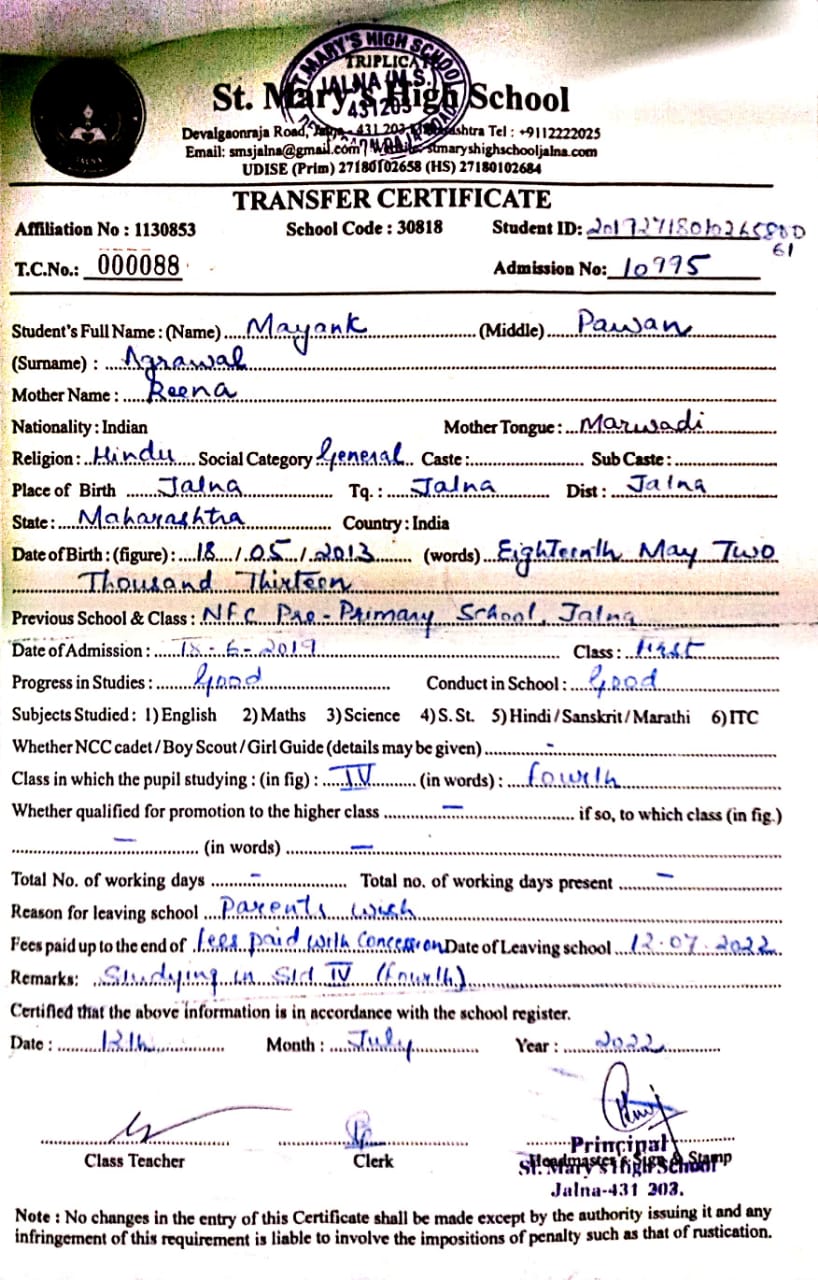 ST. MARY'S HIGH SCHOOL
TRIPLICATE
JALNA (M.S.)
431203
St. Mary's High School
Devalgaonraja Road, Jalna - 431 203 Maharashtra Tel : +9112222025
Email: smsjalna@gmail.com stmaryshighschooljalna.com
UDISE (Prim) 27180102658 (HS) 27180102684
TRANSFER CERTIFICATE
Affiliation No : 1130853 School Code : 30818 Student ID:
61
T.C.No.: 000088 Admission No: 10995
Student's Full Name : (Name) Mayank (Middle) Pawan
(Surname) : Agrawal
Mother Name : Reena
Nationality : Indian Mother Tongue : Marwadi
Religion : Hindu Social Category General Caste: Sub Caste:
Place of Birth Jalna Tq. : Jalna Dist : Jalna
State : Maharashtra Country : India
Date of Birth : (figure) : 18 / 05 / 2013 (words) Eighteenth May Two
Thousand Thirteen
Previous School & Class : NFC Pre-Primary School, Jalna
Date of Admission : 18-6-2019 Class : First
Progress in Studies : Good Conduct in School : Good
Subjects Studied : 1) English 2) Maths 3) Science 4) S. St. 5) Hindi / Sanskrit / Marathi 6) ITC
Whether NCC cadet / Boy Scout / Girl Guide (details may be given) -
Class in which the pupil studying : (in fig) : IV (in words) : fourth
Whether qualified for promotion to the higher class — if so, to which class (in fig.)
— (in words) —
Total No. of working days - Total no. of working days present -
Reason for leaving school Parents wish
Fees paid up to the end of fees paid with concession Date of Leaving school 12.07.2022
Remarks: Studying in Std IV (fourth)
Certified that the above information is in accordance with the school register.
Date : 12th Month : July Year : 2022
Class Teacher Clerk Principal
Headmaster's Sign & Stamp
St. Mary's High School
Jalna-431 203.
Note : No changes in the entry of this Certificate shall be made except by the authority issuing it and any
infringement of this requirement is liable to involve the impositions of penalty such as that of rustication.